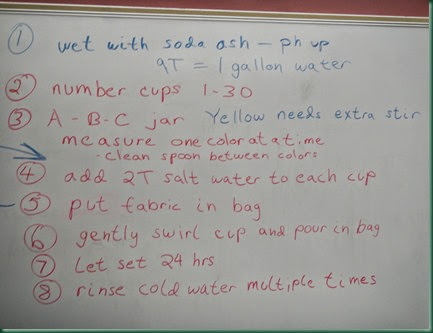 ① wet with soda ash – ph up
9T = 1 gallon water
② number cups 1-30
③ A - B - C jar Yellow needs extra stir
measure one color at a time
- clean spoon between colors
④ add 2T salt water to each cup
⑤ put fabric in bag
⑥ gently swirl cup and pour in bag
⑦ Let set 24 hrs
⑧ rinse cold water multiple times